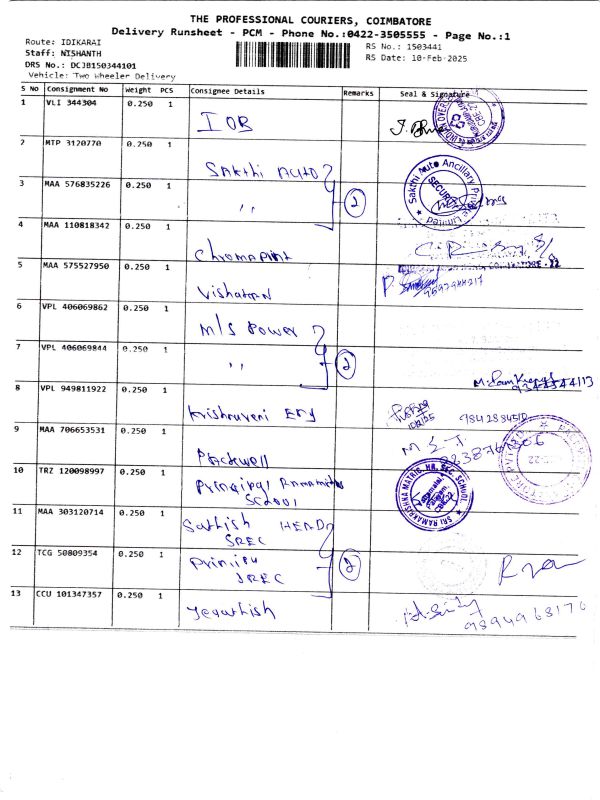 THE PROFESSIONAL COURIERS, COIMBATORE
Delivery Runsheet - PCM - Phone No.:0422-3505555 - Page No.:1
Route: IDIKARAI
RS No.: 1503441
Staff: NISHANTH
RS Date: 10-Feb-2025
DRS No.: DCJB150344101
Vehicle: Two Wheeler Delivery
S No Consignment No Weight PCS Consignee Details Remarks Seal & Signature
1 VLI 344304 0.250 1 IOB
2 MTP 3120770 0.250 1 Sakthi Auto
3 MAA 576835226 0.250 1 " 2
Sakthi Auto Ancillary Private Limited
SECURITY
4 MAA 110818342 0.250 1 Chromaprint
5 MAA 575527950 0.250 1
6 VPL 406069862 0.250 1 M/S Power
7 VPL 406069844 0.250 1 " 2
8 VPL 949811922 0.250 1 Krishnaveni
9 MAA 706653531 0.250 1
10 TRZ 120098997 0.250 1 School
SRI RAMAKRISHNA MATRIC. HR. SEC. SCHOOL
11 MAA 303120714 0.250 1 Sathish HEAD
SREC
12 TCG 50809354 0.250 1 2
13 CCU 101347357 0.250 1
9894968176